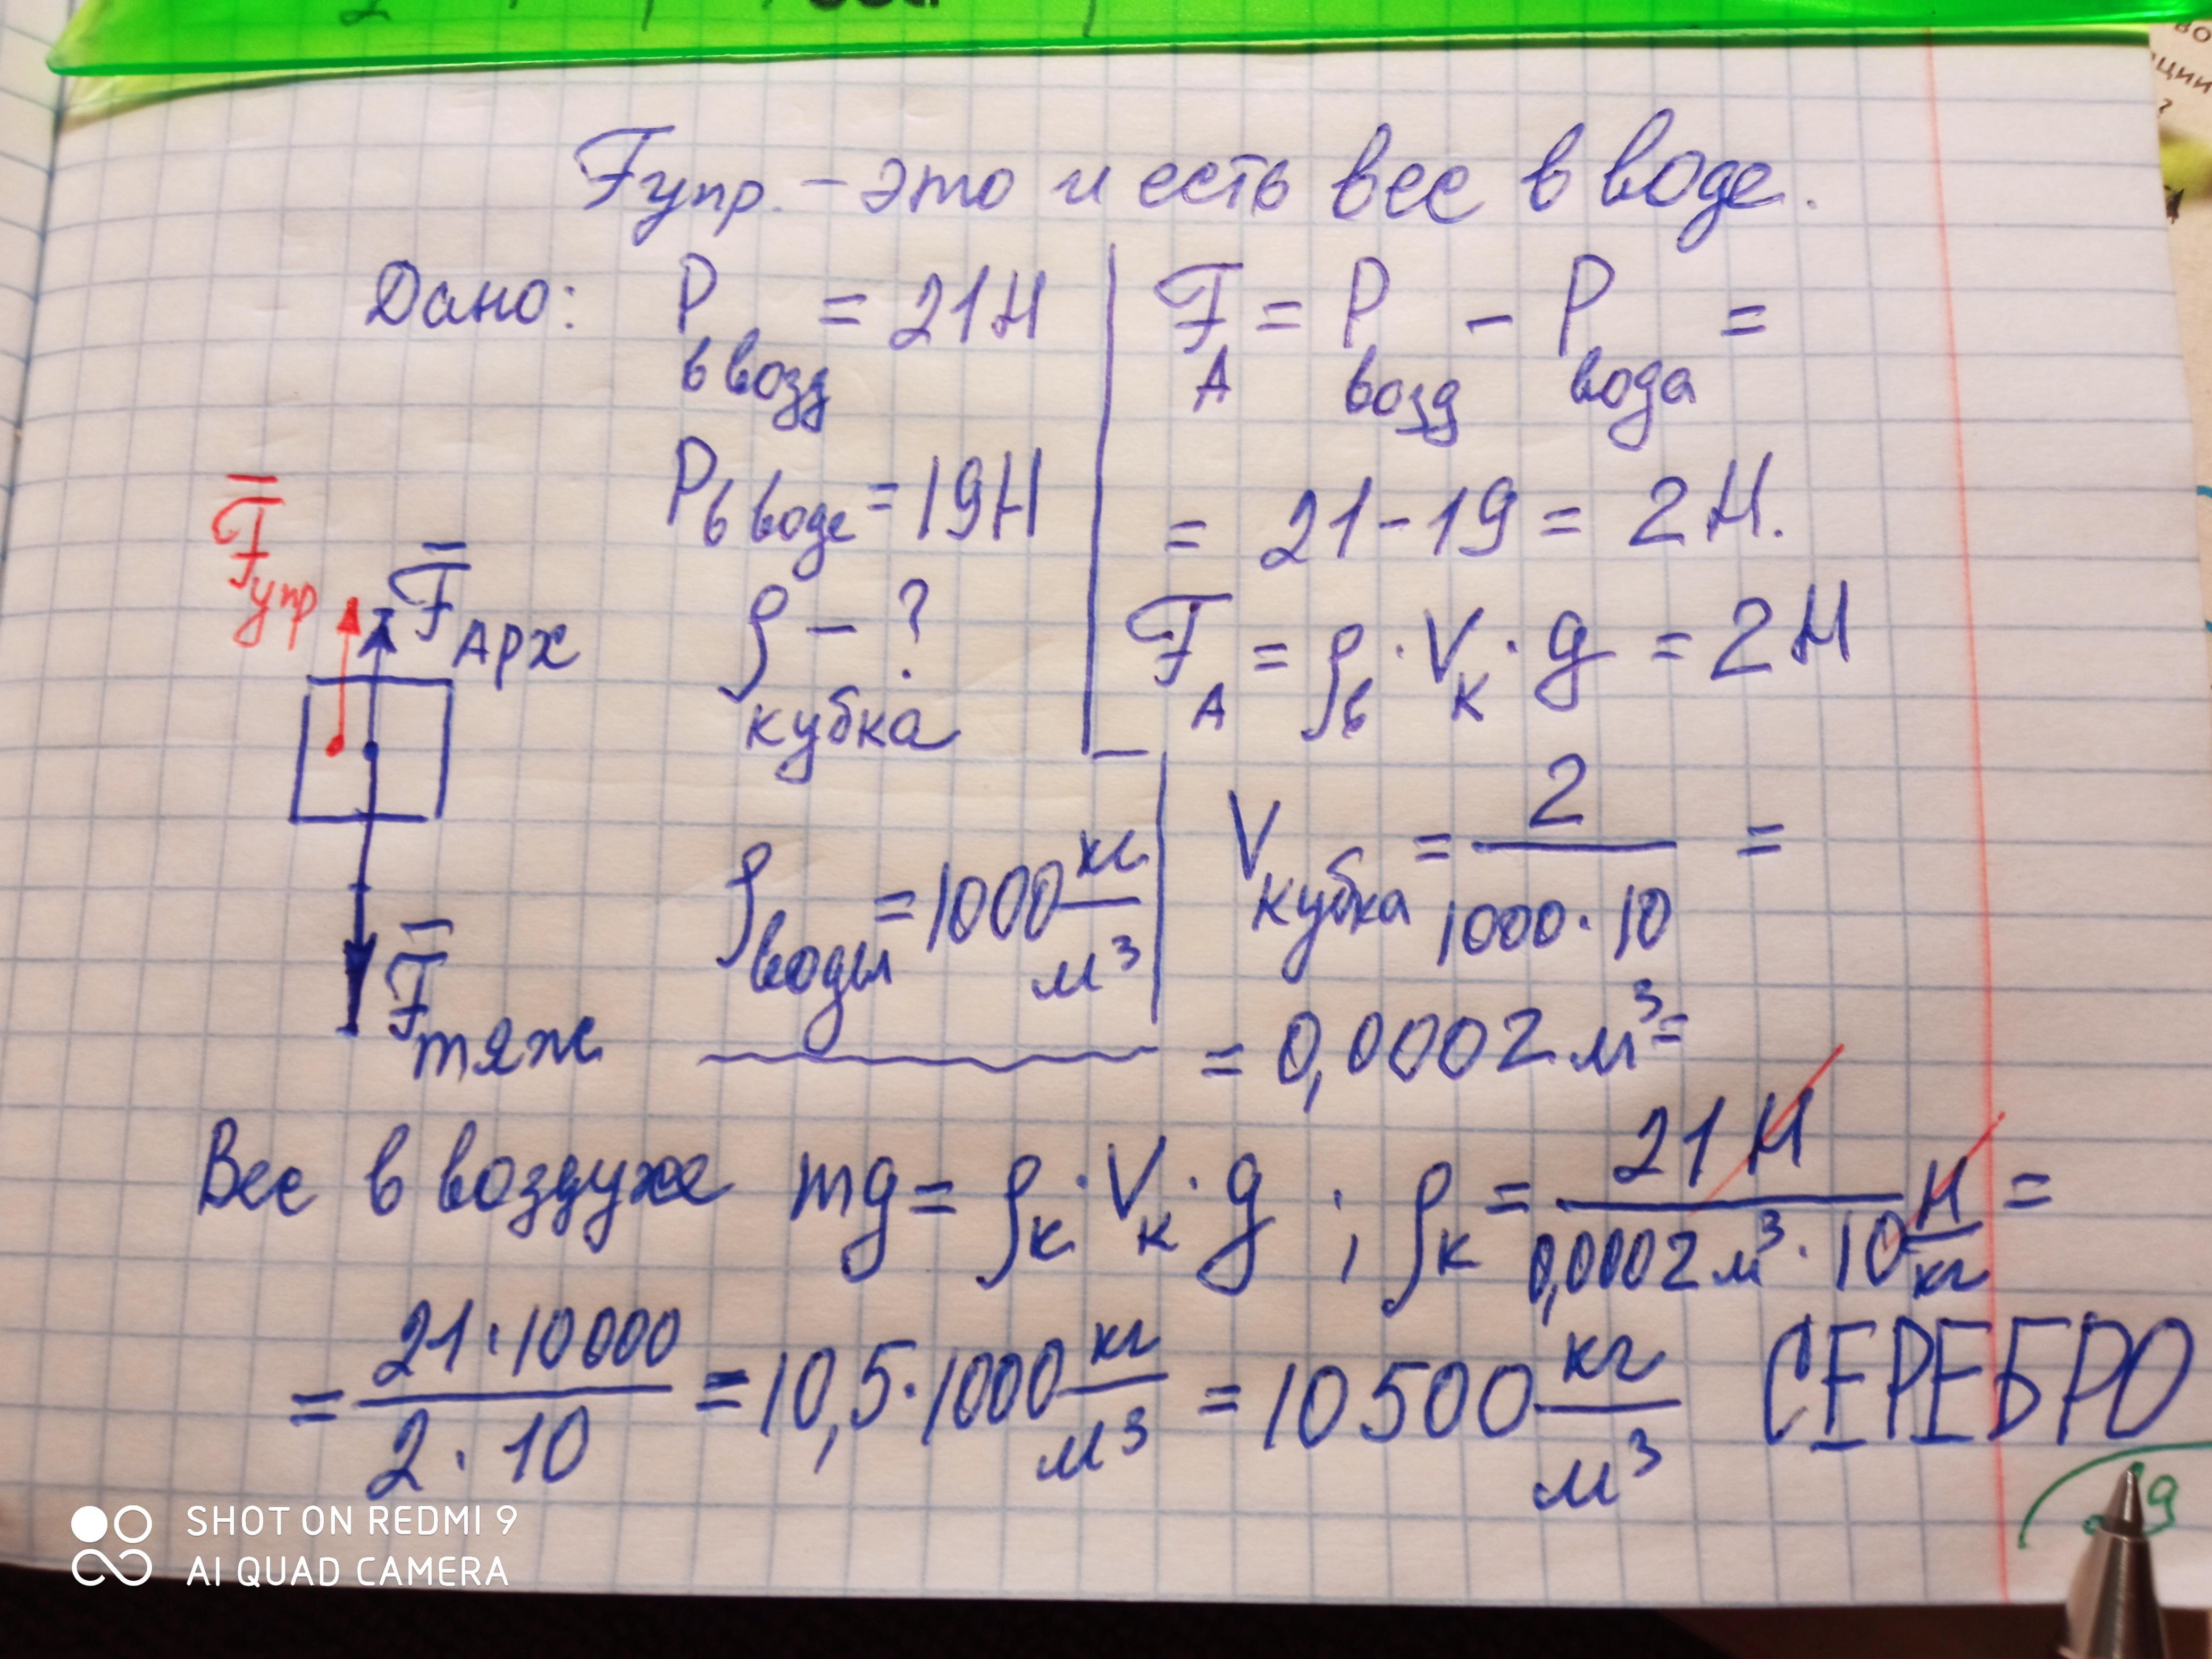 Fупр. – это и есть вес в воде.
Дано: P в возд = 21Н
P в воде = 19Н
ρ кубка – ?
ρ воды = 1000 кг/м³
F A = P возд – P вода =
= 21 - 19 = 2Н.
F A = ρв · Vк · g = 2Н
V кубка = 2/(1000 · 10) =
= 0,0002 м³ =
F̅упр
F̅Арх
F̅тяж
Вес в воздухе mg = ρк · Vк · g ; ρк = 21Н/(0,0002 м³ · 10 Н/кг) =
= (21 · 10000)/(2 · 10) = 10,5 · 1000 кг/м³ = 10500 кг/м³ СЕРЕБРО
SHOT ON REDMI 9
AI QUAD CAMERA